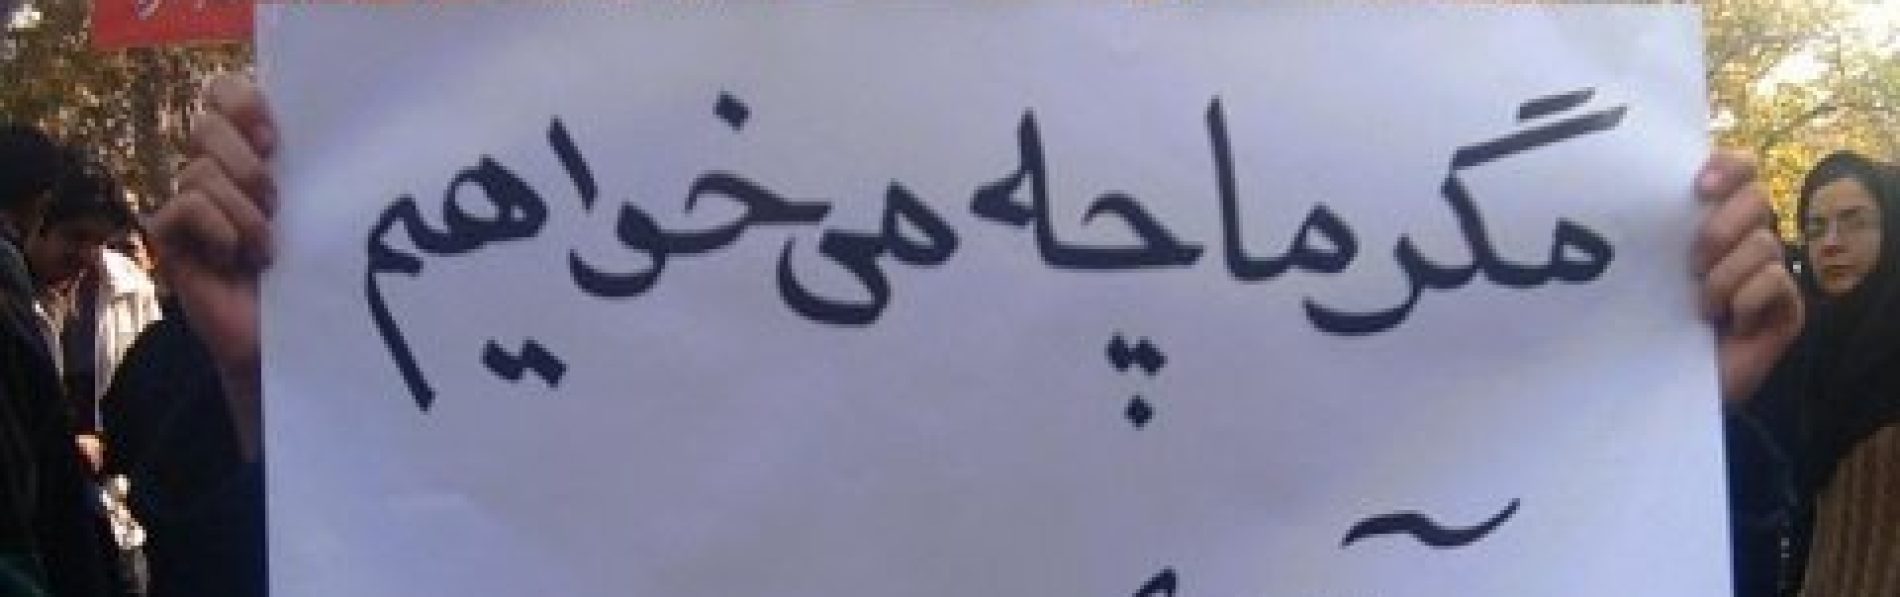 مگر ما چه می‌خواهیم